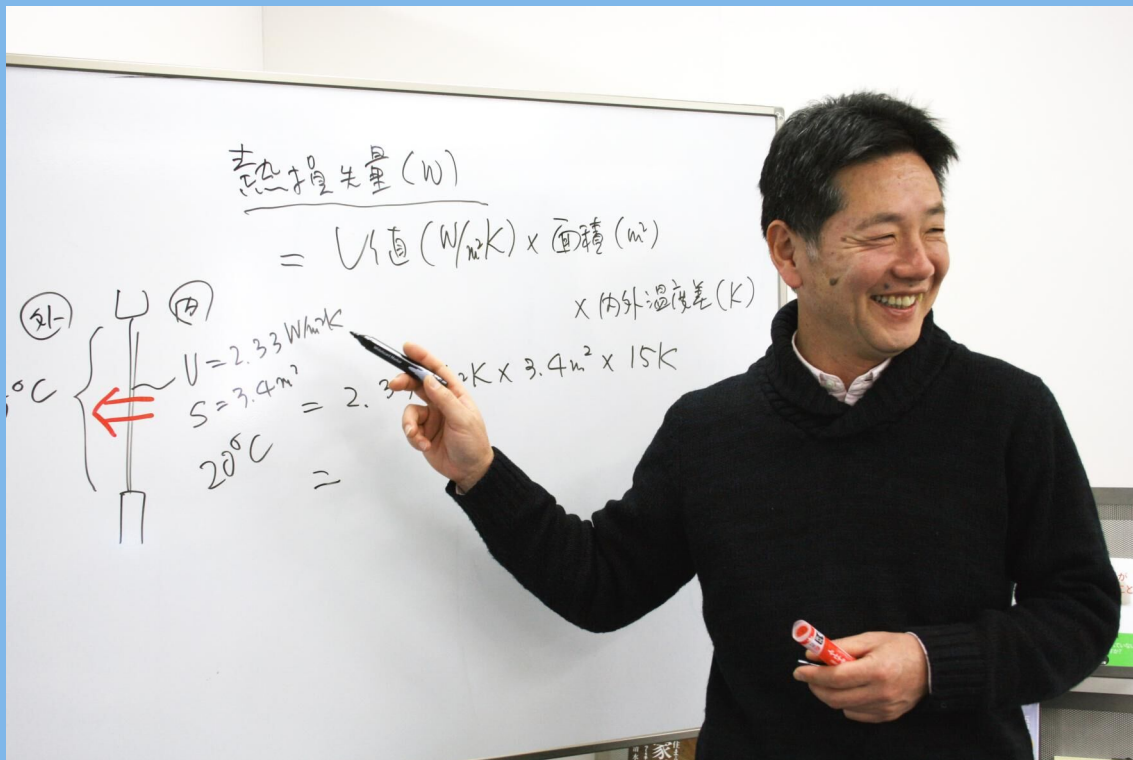 熱損失量(W)
= U値(W/m²K) × 面積(m²)
× 内外温度差(K)
外
内
U=2.33W/m²K
S=3.4m²
20℃
°C
= 2.3 ²K × 3.4m² × 15K
=
家